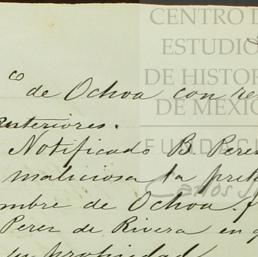 CENTRO D
ESTUDIO
DE HISTOR
DE MÉXIC
FUNDACI
co de Ochoa con re
anteriores.
Notificado B. Pere
maliciosa la pret
mbre de Ochoa, f
Perez de Rivera en q
su probidad